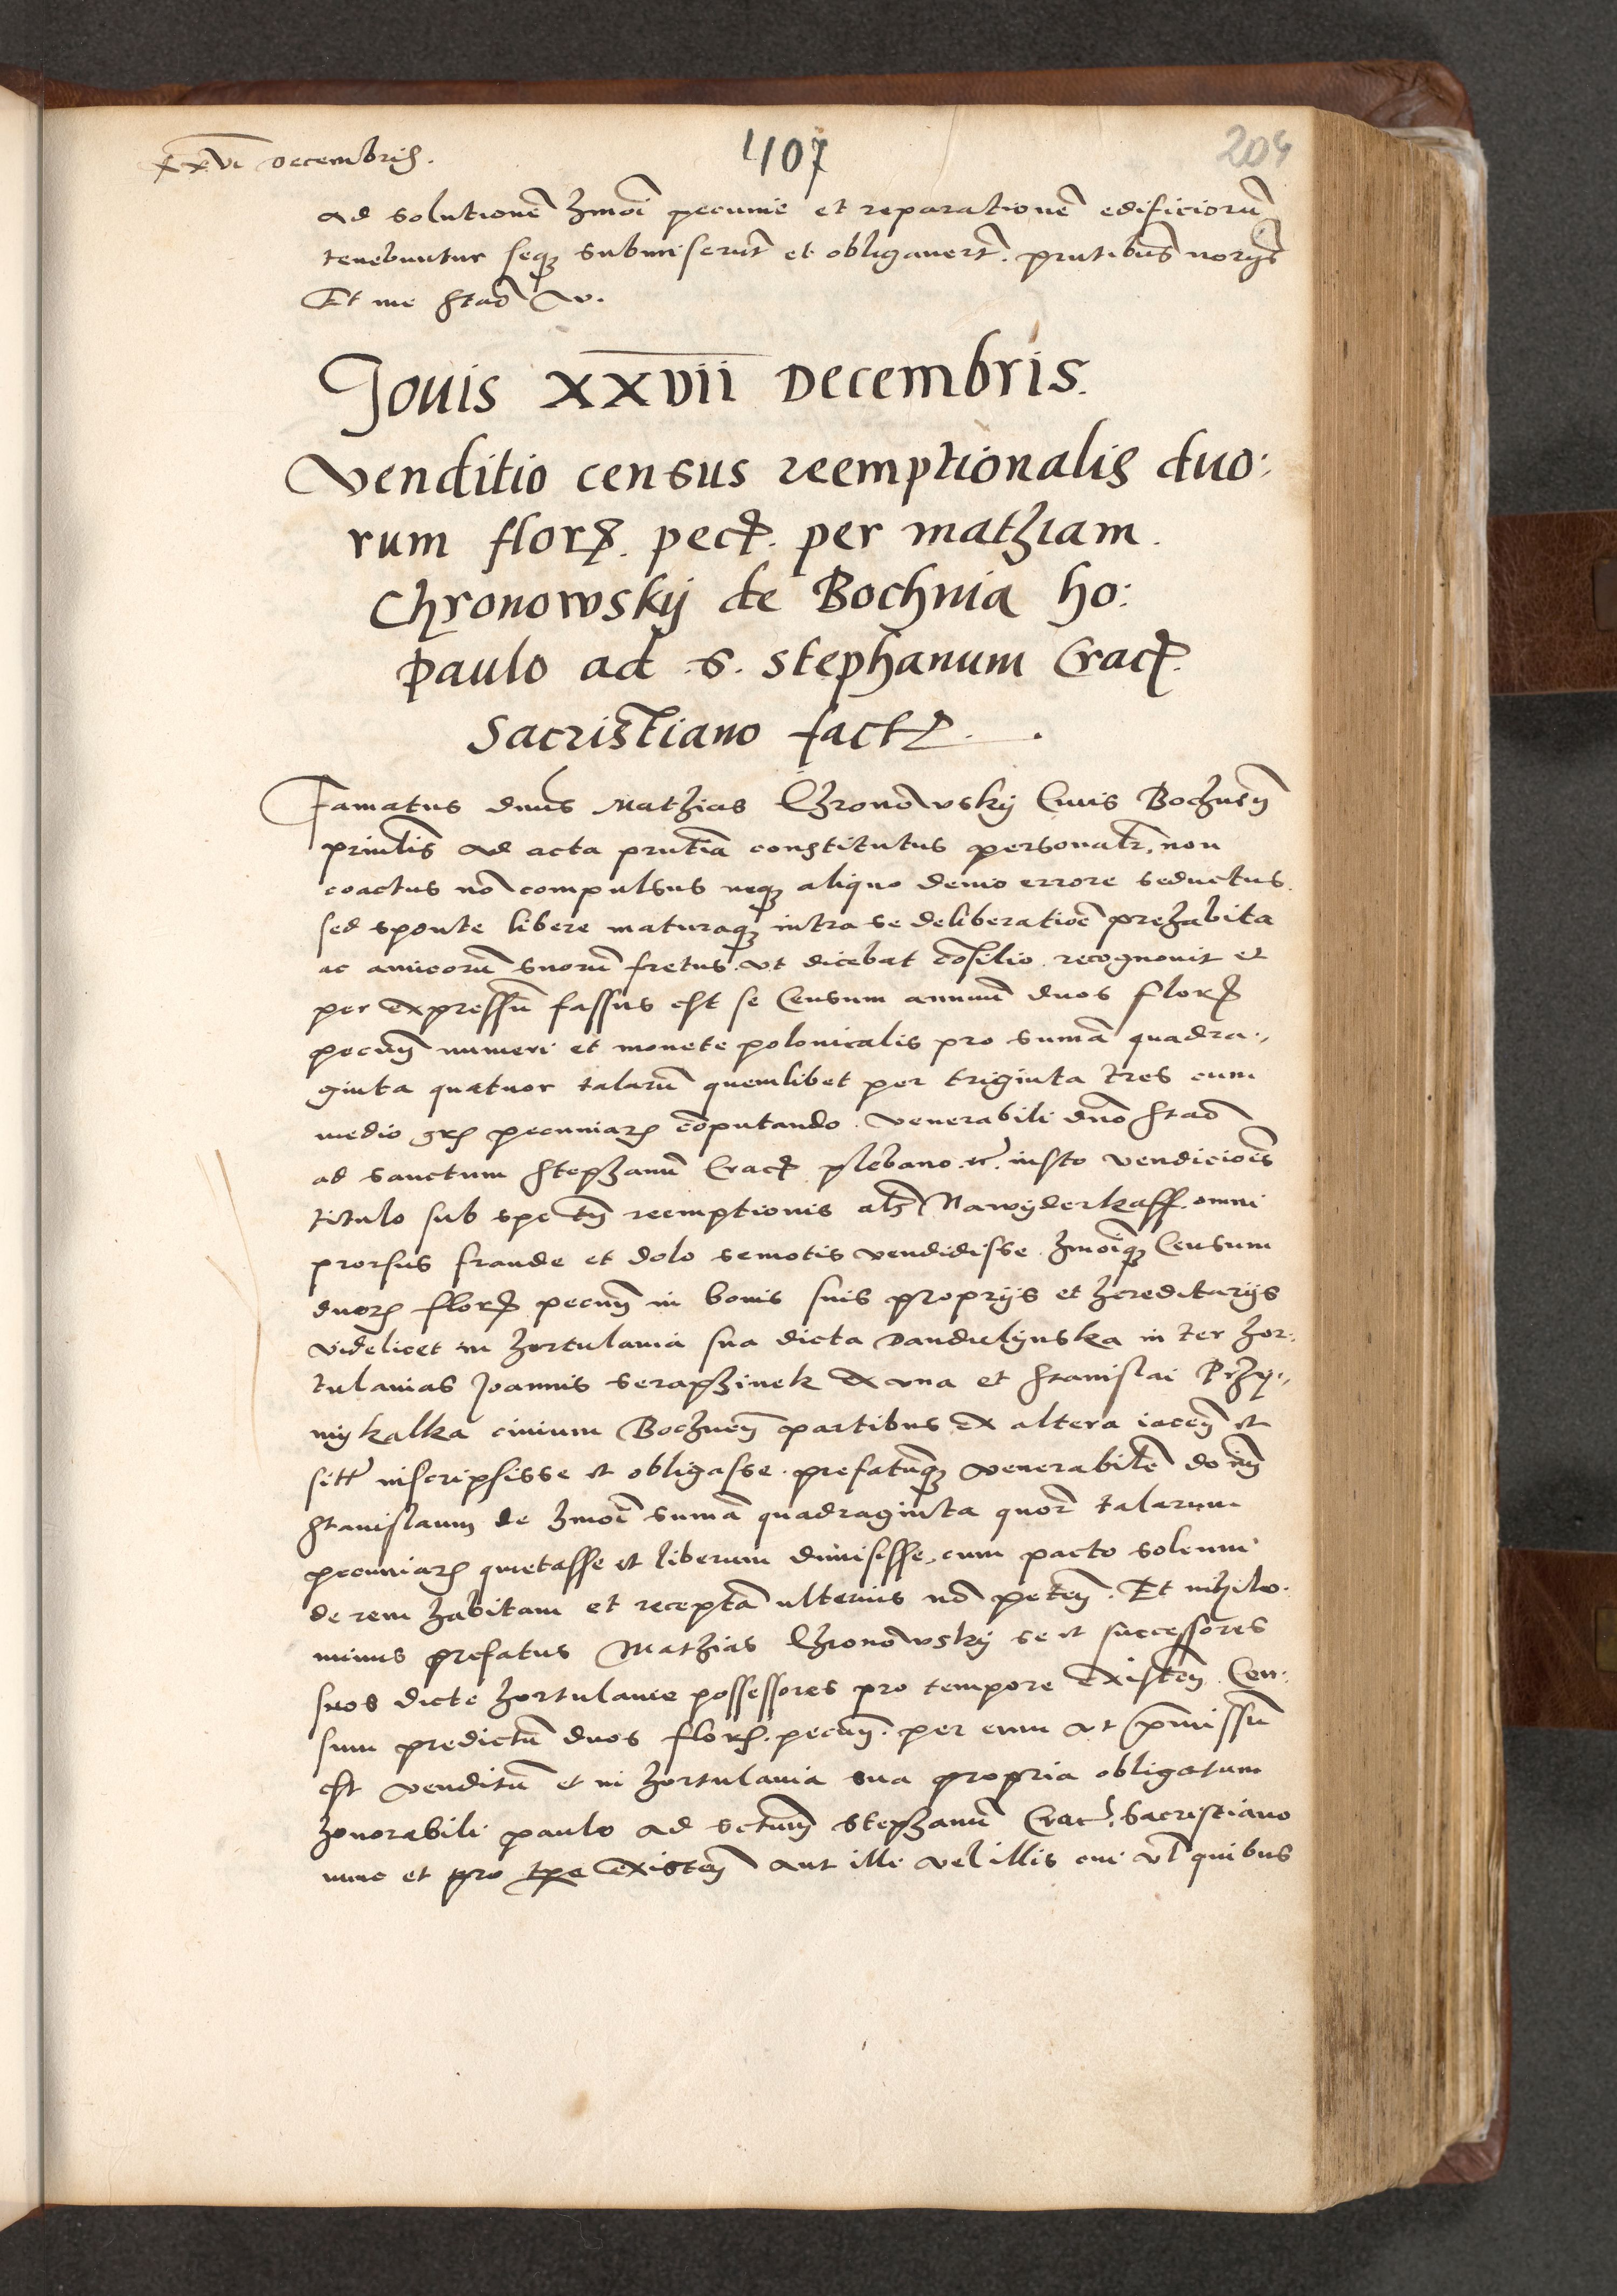 xxvi decembris.
407
204
ad solutionē hmōi pecunie et reparationē edificiorū
tenebuntur seqz submiserūt et obligauerūt. pn̄tibus
Et me Stan̄
Jouis XXVII Decembris.
Venditio census reemptionalis duo:
rum flor. pec. per mathiam
Chronowskÿ de Bochnia ho:
paulo ad .S. stephanum Crac.
Sacristiano fact.
Famatus dnūs Mathias Chronowskÿ Ciuis Bochneñ
principalis ad acta pn̄tia constitutus personalr̄, non
coactus nō compulsus neqz aliquo deuio errore seductus.
sed sponte libere maturaqz intra se deliberatiōe prehabita
ac amicorū suorū fretus vt dicebat cōsilio recognouit et
per expressū fassus est se Censum annuū duos flor.
pecuñ numeri et monete polonicalis pro sumā quadra,,
ginta quatuor talarū quemlibet per triginta tres cum
medio gr. pecuniar. cōputando. venerabili dnō Stan̄
ad sanctum Stephanū Crac. plebano. iusto vendiciois
titulo sub spe tñ reemptionis als Nawyderkaff. omni
prorsus fraude et dolo semotis vendidisse. hmoiqz Censum
duor. flor. pecuñ in bonis suis proprijs et hereditarijs
videlicet in hortulania sua dicta Dandulynska in ter hor:
tulanias Joannis seraphinek ex vna et Stanislai Przy,,
mykalka ciuium Bochneñ partibus ex altera iaceñ et
sitt inscripsisse et obligasse. prefatūqz venerabilē doñm
Stanislaum de hmōi sumā quadraginta quor talarum
pecuniar. quietasse et liberum dimisisse, cum pacto solenni
de rem habitam et receptā ulterius nō peteñ. Et nihilo:
minus prefatus Mathias Chronowskÿ se et successores
suos dicte hortulanie possessores pro tempore existeñ. Cen:
sum predictū duos flor. pecuñ. per eum vt p̄missū
est venditū et in hortulania sua propria obligatum
honorabili paulo ad sctum̄ Stephanū Crac. Sacristiano
nunc et pro tpe existeñ aut illi vel illis cui vl quibus